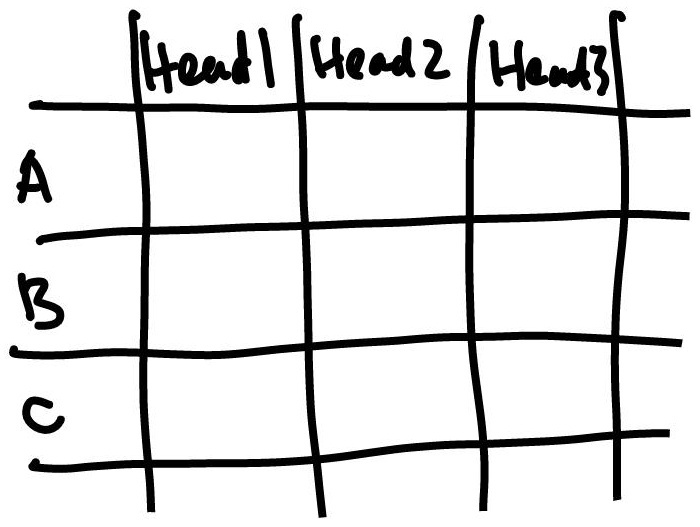 Head1 Head2 Head3
A
B
C